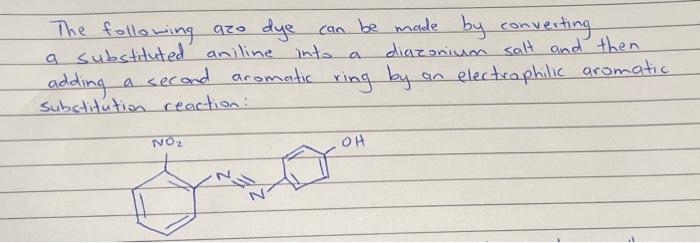 The following azo dye can be made by converting
a substituted aniline into a diazonium salt and then
adding a second aromatic ring by an electrophilic aromatic
substitution reaction:
NO₂
OH
N
N